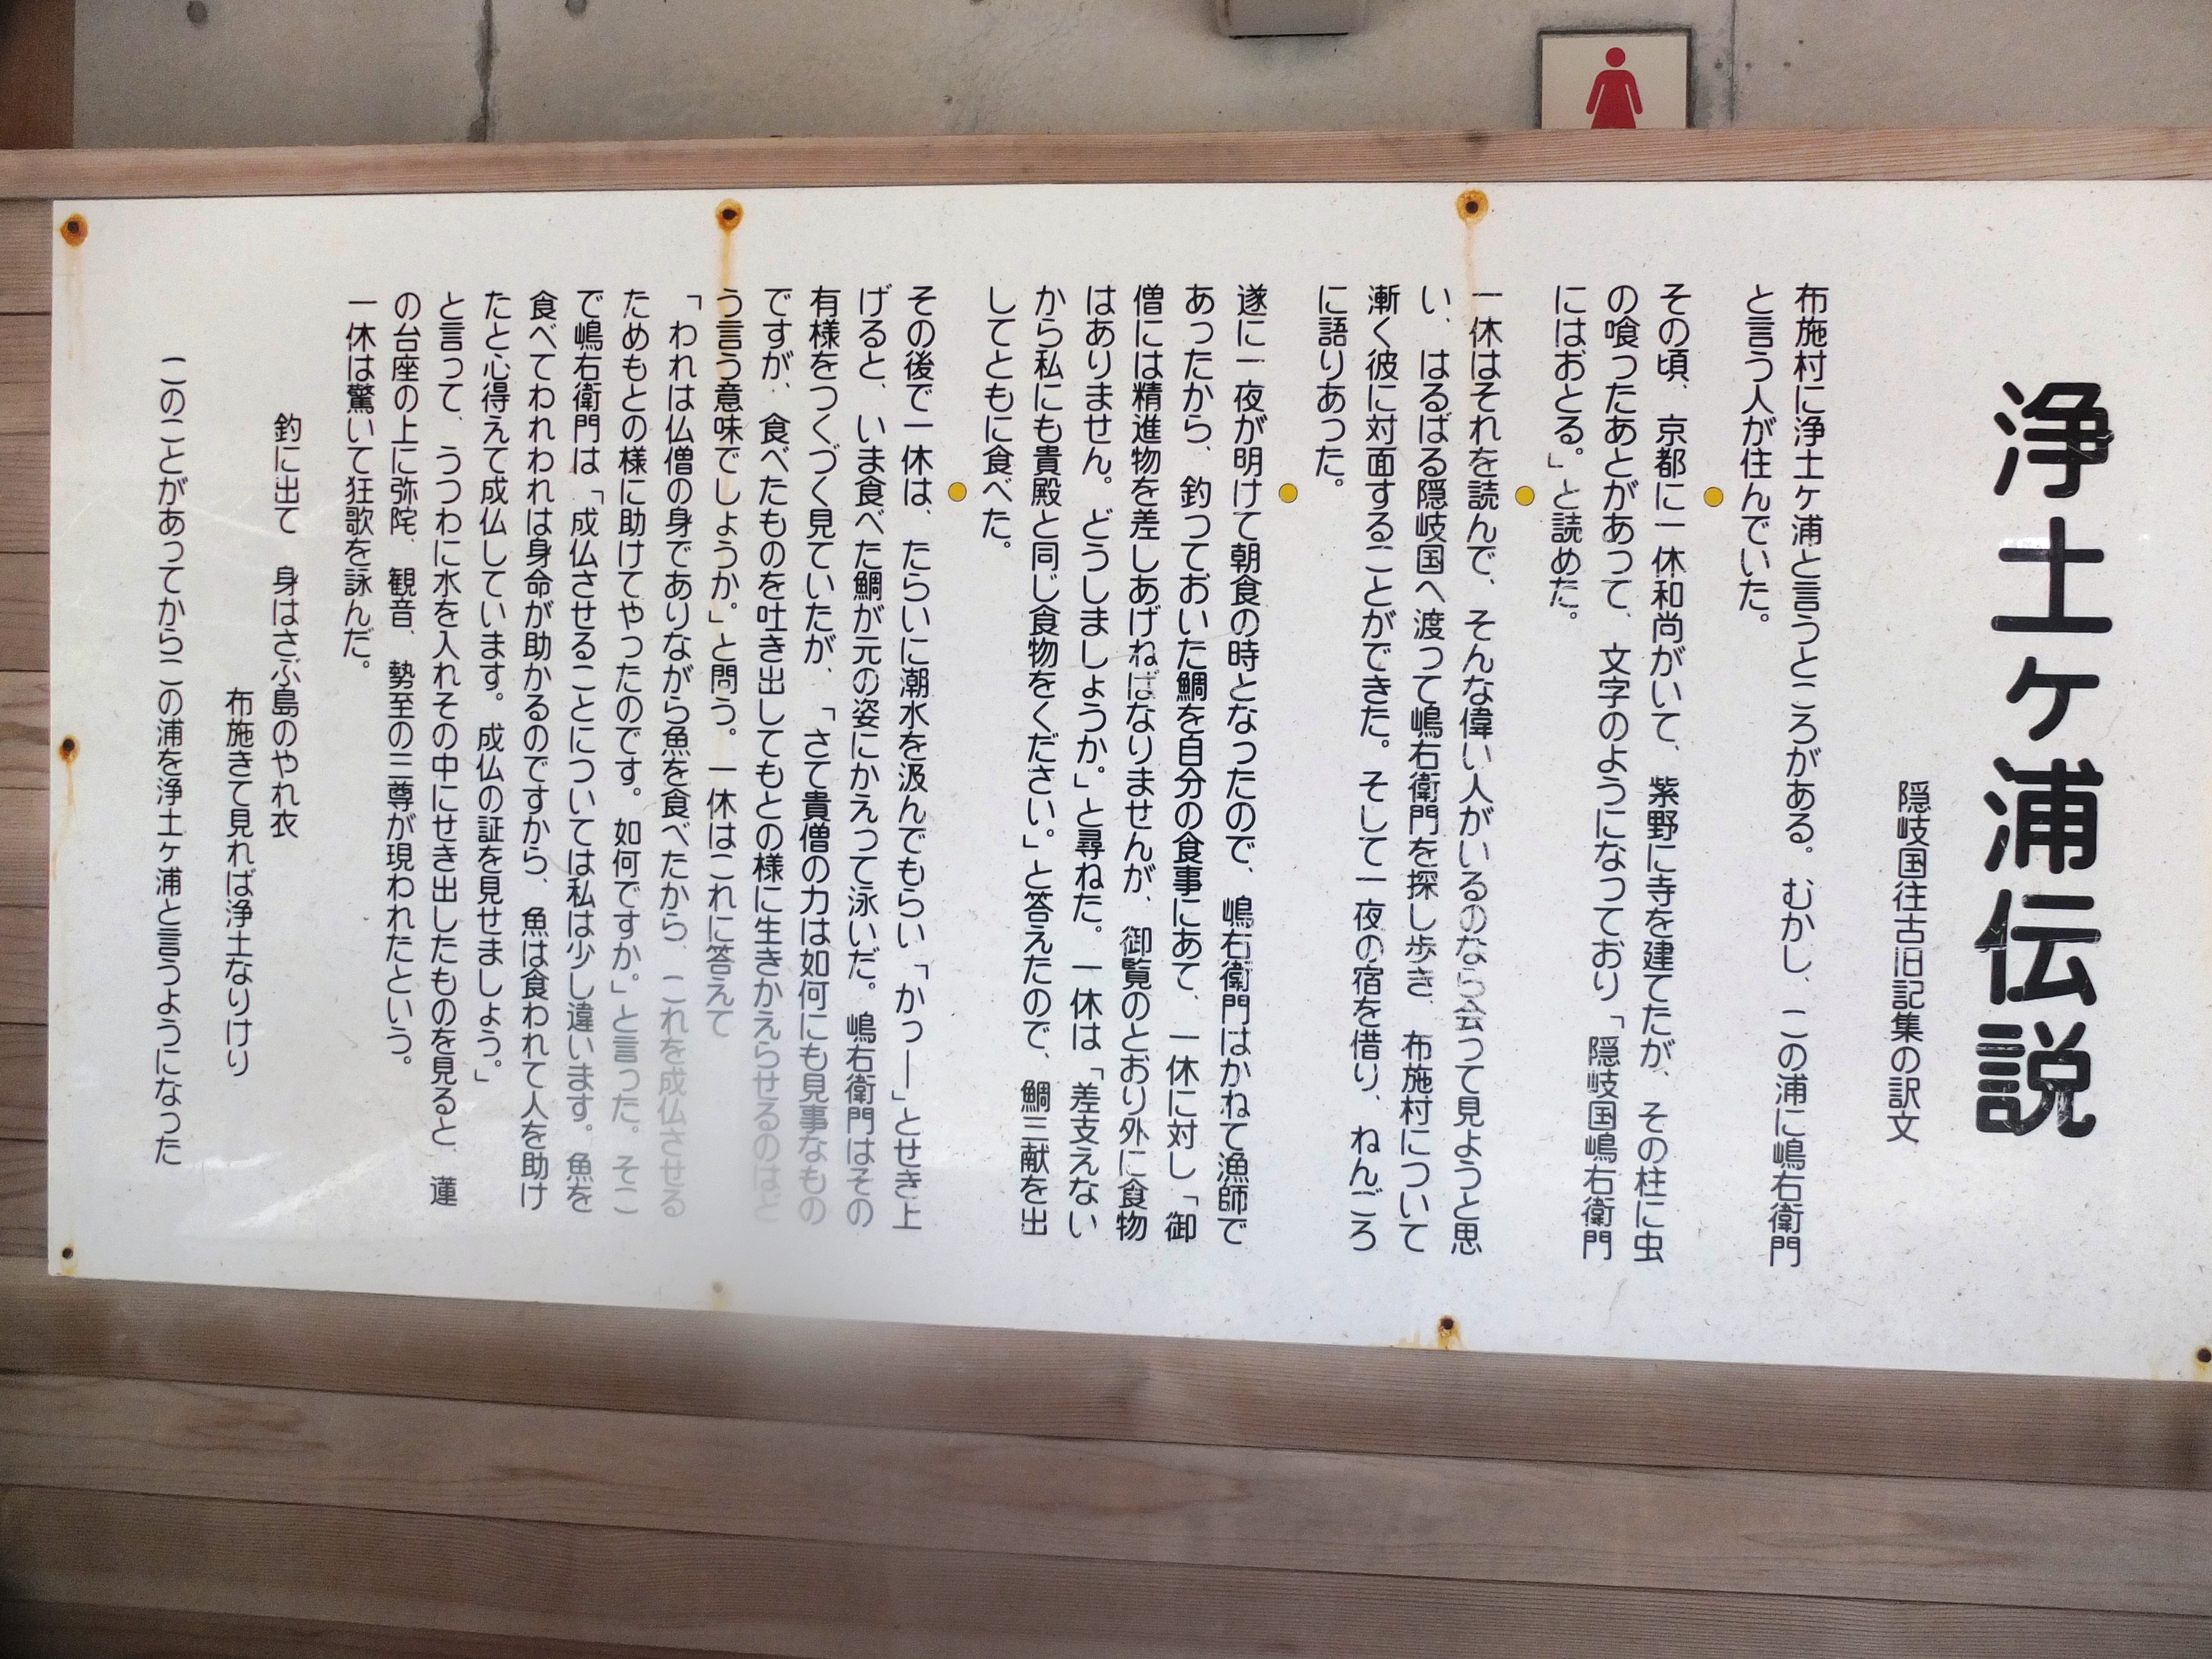 浄土ヶ浦伝説
隠岐国往古旧記集の訳文
布施村に浄土ヶ浦と言うところがある。むかし、この浦に嶋右衛門
と言う人が住んでいた。
その頃、京都に一休和尚がいて、紫野に寺を建てたが、その柱に虫
の喰ったあとがあって、文字のようになっており「隠岐国嶋右衛門
にはおとる。」と読めた。
一休はそれを読んで、そんな偉い人がいるのなら会って見ようと思
い、はるばる隠岐国へ渡って嶋右衛門を探し歩き、布施村について
漸く彼に対面することができた。そして一夜の宿を借り、ねんごろ
に語りあった。
遂に一夜が明けて朝食の時となったので、嶋右衛門はかねて漁師で
あったから、釣っておいた鯛を自分の食事にあて、一休に対し「御
僧には精進物を差しあげねばなりませんが、御覧のとおり外に食物
はありません。どうしましょうか。」と尋ねた。一休は「差支えない
から私にも貴殿と同じ食物をください。」と答えたので、鯛三献を出
してともに食べた。
その後で一休は、たらいに潮水を汲んでもらい「かっ―」とせき上
げると、いま食べた鯛が元の姿にかえって泳いだ。嶋右衛門はその
有様をつくづく見ていたが、「さて貴僧の力は如何にも見事なもの
ですが、食べたものを吐き出してもとの様に生きかえらせるのはど
う言う意味でしょうか。」と問う。一休はこれに答えて
「われは仏僧の身でありながら魚を食べたから、これを成仏させる
ためもとの様に助けてやったのです。如何ですか。」と言った。そこ
で嶋右衛門は「成仏させることについては私は少し違います。魚を
食べてわれわれは身命が助かるのですから、魚は食われて人を助け
たと心得えて成仏しています。成仏の証を見せましょう。」
と言って、うつわに水を入れその中にせき出したものを見ると、蓮
の台座の上に弥陀、観音、勢至の三尊が現われたという。
一休は驚いて狂歌を詠んだ。
釣に出て　身はさぶ島のやれ衣
布施きて見れば浄土なりけり
このことがあってからこの浦を浄土ヶ浦と言うようになった